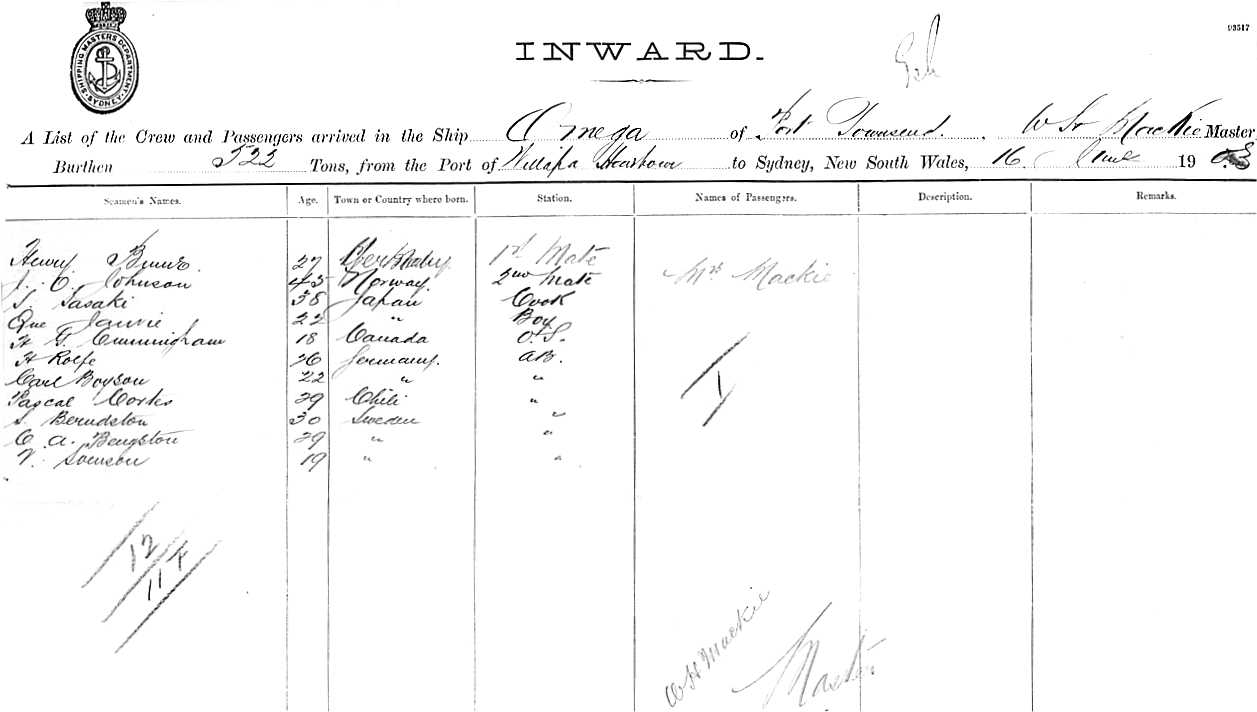 SHIPPING MASTERS DEPARTMENT
SYDNEY
03517
INWARD.
A List of the Crew and Passengers arrived in the Ship Omega of Port Townsend. W H Mackie Master
Burthen 522 Tons, from the Port of Willapa Harbour to Sydney, New South Wales, 16 June 19 03
Seamen's Names. Age. Town or Country where born. Station. Names of Passengers. Description. Remarks.
Henry 27 1st Mate
J. C. Johnson 45 Norway. 2nd Mate Mrs Mackie
S. Sasaki 38 Japan Cook
22 " Boy
H G. Cunningham 18 Canada O.S.
H Rolfe 26 Germany. AB.
Carl Boyson 22 " "
Pascal Cortes 29 Chili "
S. Berndston 30 Sweden "
C. A. Bengston 29 " "
V. Soenson 19 " "
1
12
11 F
W H Mackie
Master